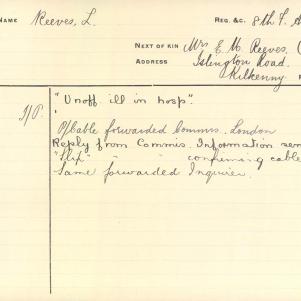 NAME Reeves, L. REG. &C. 8th F. A
NEXT OF KIN Mrs E. M. Reeves, (
ADDRESS Islington Road.
Kilkenny
I/P. "Unoff. ill in hosp".
"
P/Cable forwarded Commis. London
Reply from Commis. Information sen
"Slip" " " confirming cable
Same forwarded Inquirer.